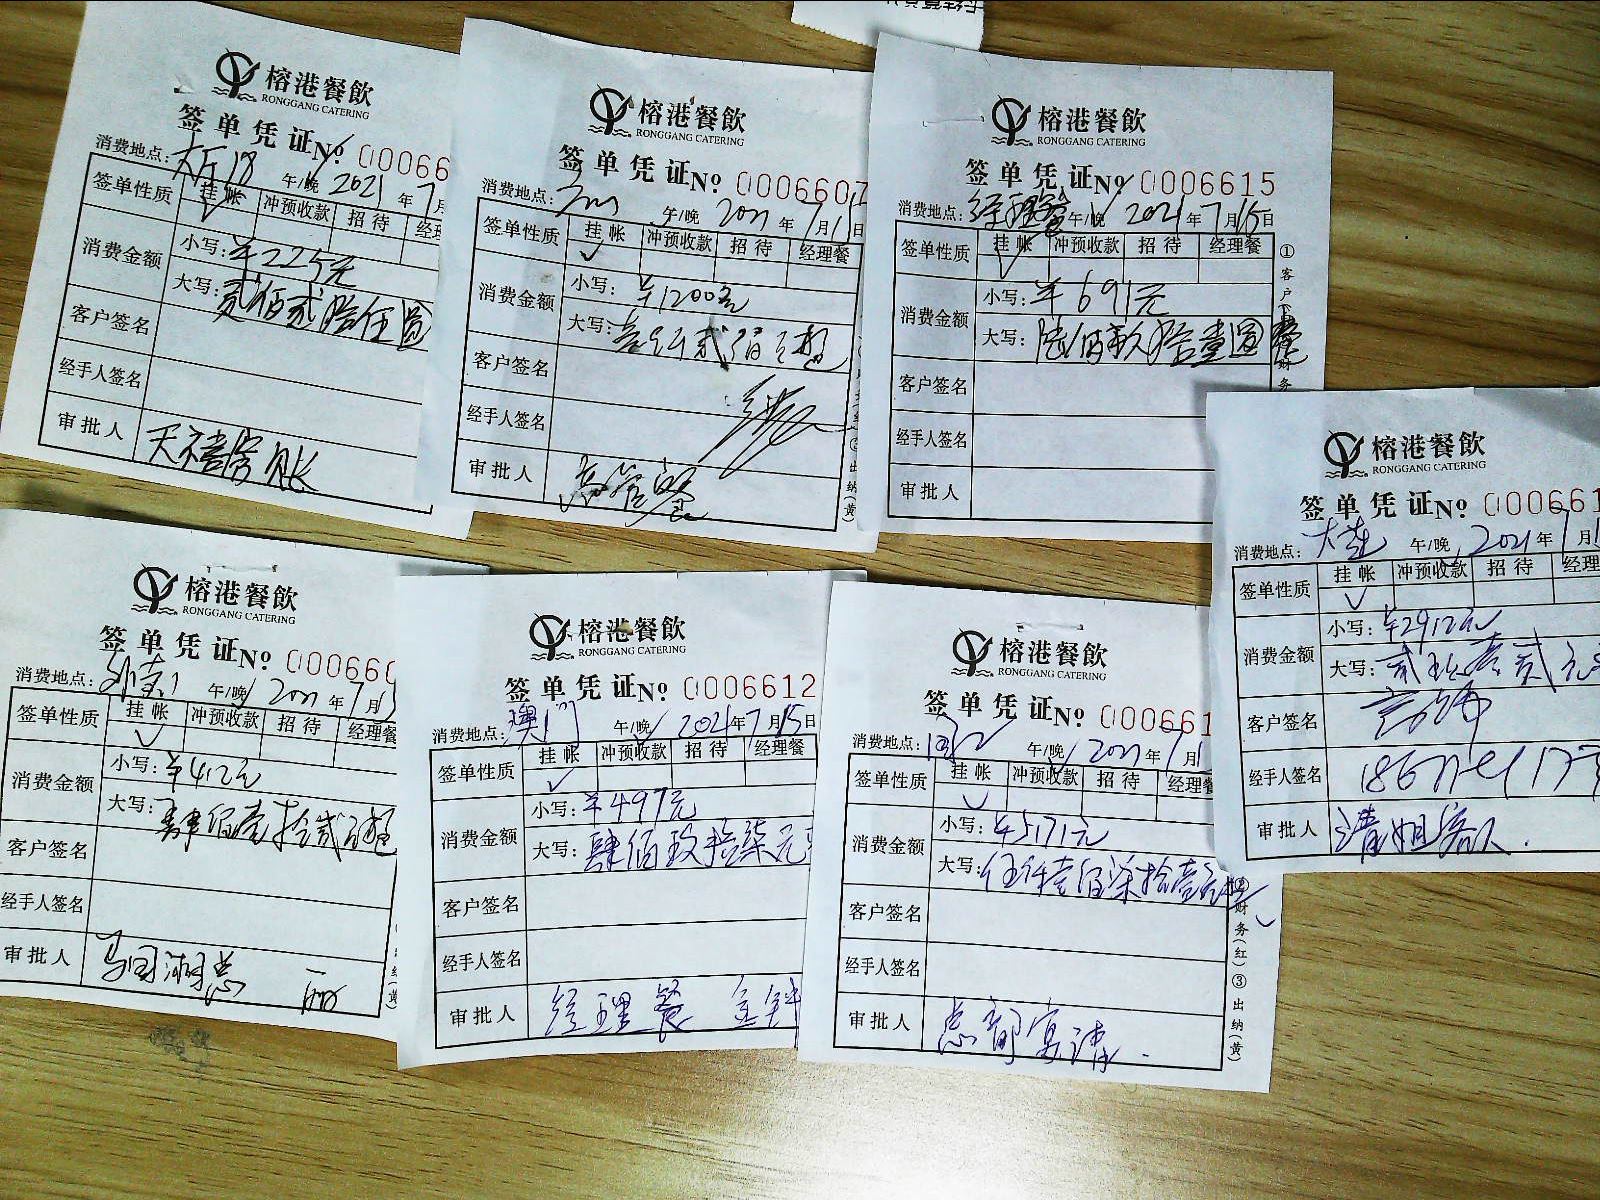 榕港餐飲
RONGGANG CATERING
签单凭证№ 00066
消费地点：大厅18 午/晚 2021年7月
签单性质 挂帐 冲预收款 招待 经理
消费金额 小写：¥225元
大写：贰佰贰拾伍圆
客户签名
经手人签名
审批人 天禧房账
榕港餐飲
RONGGANG CATERING
签单凭证№ 0006607
消费地点： 午/晚 2021年7月15日
签单性质 挂帐 冲预收款 招待 经理餐
消费金额 小写：¥1200元
大写：壹仟贰佰元整
客户签名
经手人签名
审批人 高管餐
榕港餐飲
RONGGANG CATERING
签单凭证№ 0006615
消费地点：经理餐 午/晚 2021年7月15日
签单性质 挂帐 冲预收款 招待 经理餐
消费金额 小写：¥691元
大写：陆佰玖拾壹圆整
客户签名
经手人签名
审批人
①客户
财务
榕港餐飲
RONGGANG CATERING
签单凭证№ 000661
消费地点：大连 午/晚 2021年7月1
签单性质 挂帐 冲预收款 招待 经理
消费金额 小写：¥2912元
大写：贰 壹 贰元
客户签名
经手人签名
审批人 清姐客人.
榕港餐飲
RONGGANG CATERING
签单凭证№ 000660
消费地点： 午/晚 2021年7月15
签单性质 挂帐 冲预收款 招待 经理餐
消费金额 小写：¥412元
大写：肆佰壹拾贰元整
客户签名
经手人签名
审批人 马国湖总
榕港餐飲
RONGGANG CATERING
签单凭证№ 0006612
消费地点：澳门 午/晚 2021年7月15日
签单性质 挂帐 冲预收款 招待 经理餐
消费金额 小写：¥497元
大写：肆佰玖拾柒元
客户签名
经手人签名
审批人 经理餐
榕港餐飲
RONGGANG CATERING
签单凭证№ 000661
消费地点： 午/晚 2021年7月1
签单性质 挂帐 冲预收款 招待 经理餐
消费金额 小写：¥5171元
大写：伍仟壹佰柒拾壹元整
客户签名
经手人签名
审批人 总部宴请.
②财务(红)③出纳(黄)